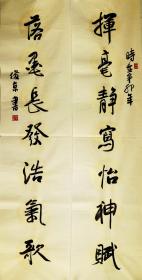 時在辛卯年
揮毫靜寫怡神賦
落墨長發浩氣歌
俊卓書